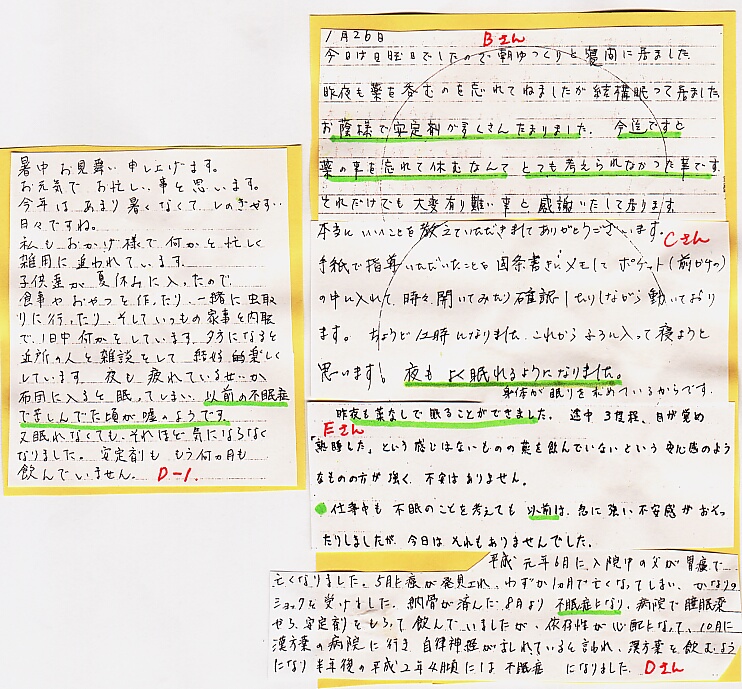 暑中お見舞い申し上げます。
お元気でお忙しい事と思います。
今年はあまり暑くなくてしのぎやすい
日々ですね。
私もおかげ様で何かと忙しく
雑用に追われています。
子供達が夏休みに入ったので
食事やおやつを作ったり、一緒に虫取
りに行ったり、そしていつもの家事と内職
で、1日中何かをしています。夕方になると
近所の人と雑談をして 結好的楽しく
しています 夜も疲れているせいか
布団に入ると眠ってしまい、以前の不眠症
で苦しんでた頃が嘘のようです
又眠れなくても、それほど気にならなく
なりました。安定剤も もう何ヵ月も
飲んでいません。 D-1.
1月26日 Bさん
今日は日曜日でしたので朝ゆっくりと寝間に居ました
昨夜も薬を呑むのを忘れてねましたが結構眠って居ました
お蔭様で安定剤がたくさんたまりました。今迄ですと
薬の事を忘れて休むなんてとても考えられなかった事です
それだけでも大変有り難い事と感謝いたして居ります
本当にいいことを教えていただきましてありがとうございます。
Cさん
手紙で指導いただいたことを箇条書きにメモして ポケット(前かけの)
の中に入れて、時々、開いてみたり確認したりしながら動いており
ます。ちょうど12時になりました これからふろに入って寝ようと
思います。夜もよく眠れるようになりました。
身体が眠りを求めているからです.
昨夜も薬なしで眠ることができました。途中3度程、目が覚め
Eさん
「熟睡した」という感じはないものの薬を飲んでいないという安心感のよう
なものの方が強く、不安はありません。
仕事中も不眠のことを考えても以前は、急に強い不安感がおそっ
たりしましたが、今日はそれもありませんでした。
平成元年6月に、入院中の父が胃癌で
亡くなりました。5月に癌が発見され、わずか1ヵ月で亡くなってしまい、かなりの
ショックを受けました。納骨が済んだ8月より不眠症になり、病院で睡眠薬
やら、安定剤をもらって飲んでいましたが、依存性が心配になって、10月に
漢方薬の病院に行き 自律神経が乱れていると言われ、漢方薬を飲むよう
になり半年後の平成2年4月頃には不眠症 になりました。 Dさん